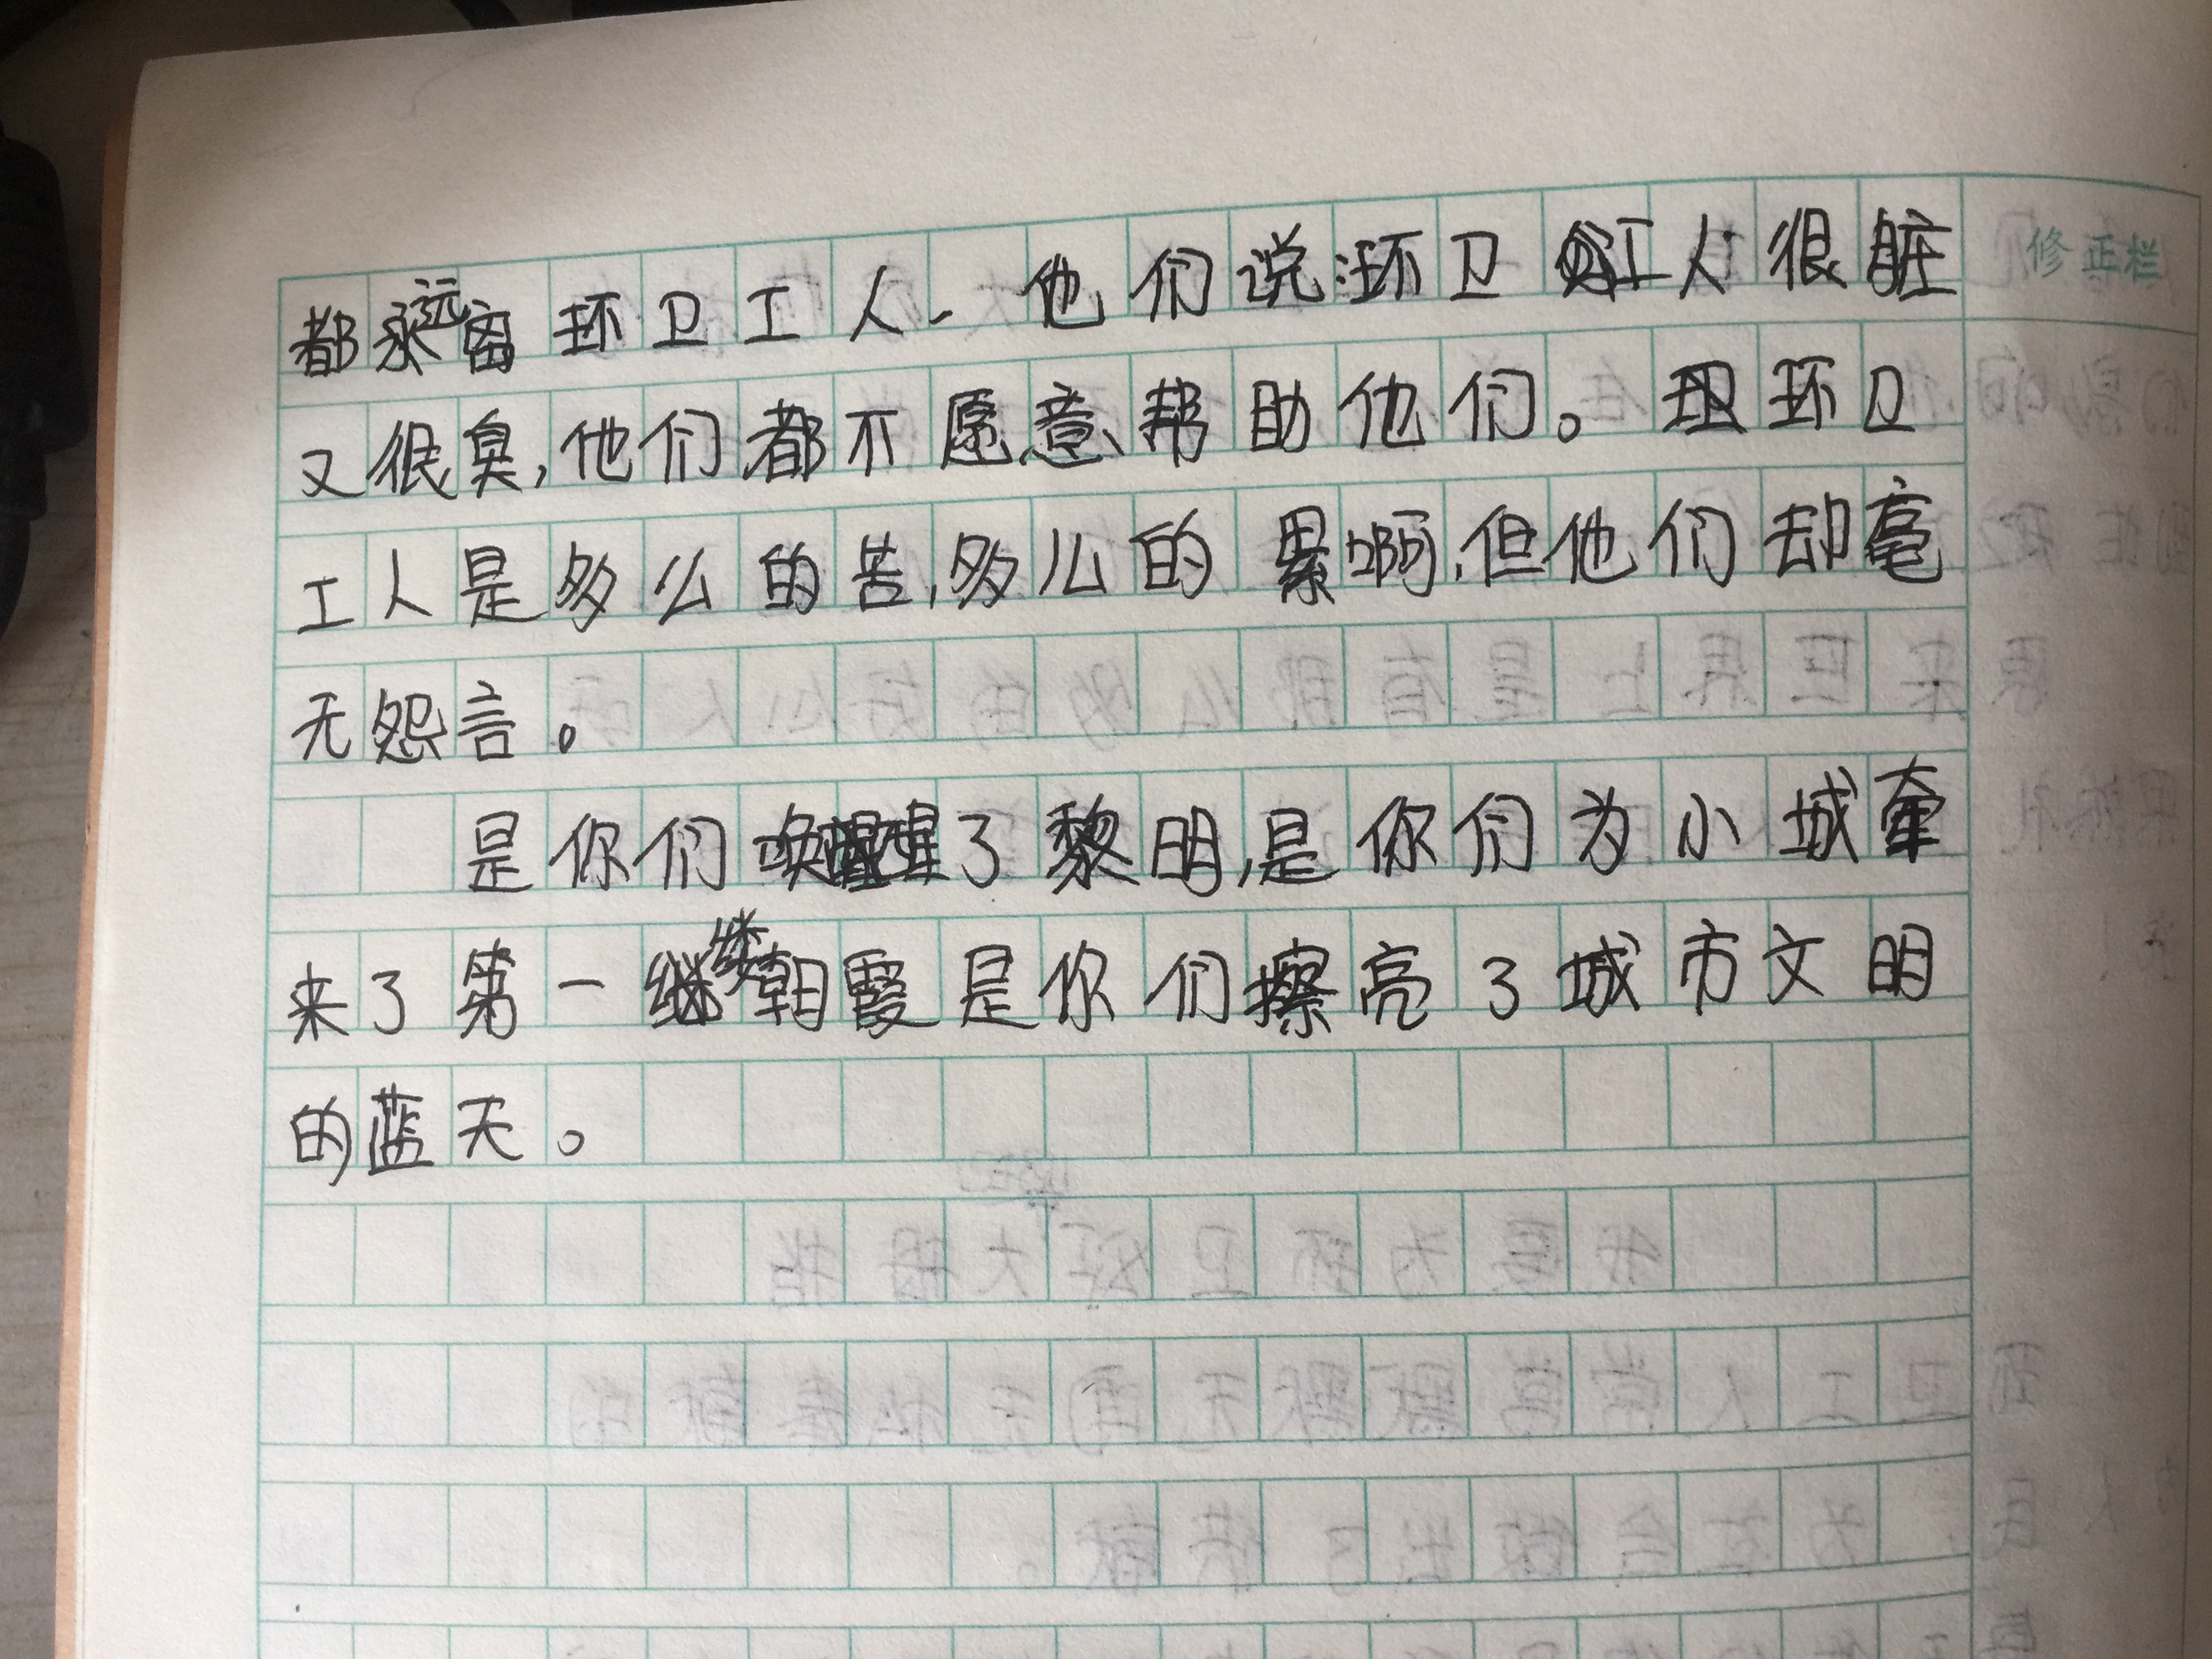 修正栏
都远离环卫工人、他们说:环卫工人很脏
又很臭,他们都不愿意帮助他们。环卫
工人是多么的苦,多么的累啊,但他们却毫
无怨言。
是你们唤醒了黎明,是你们为小城牵
来了第一缕朝霞是你们擦亮了城市文明
的蓝天。